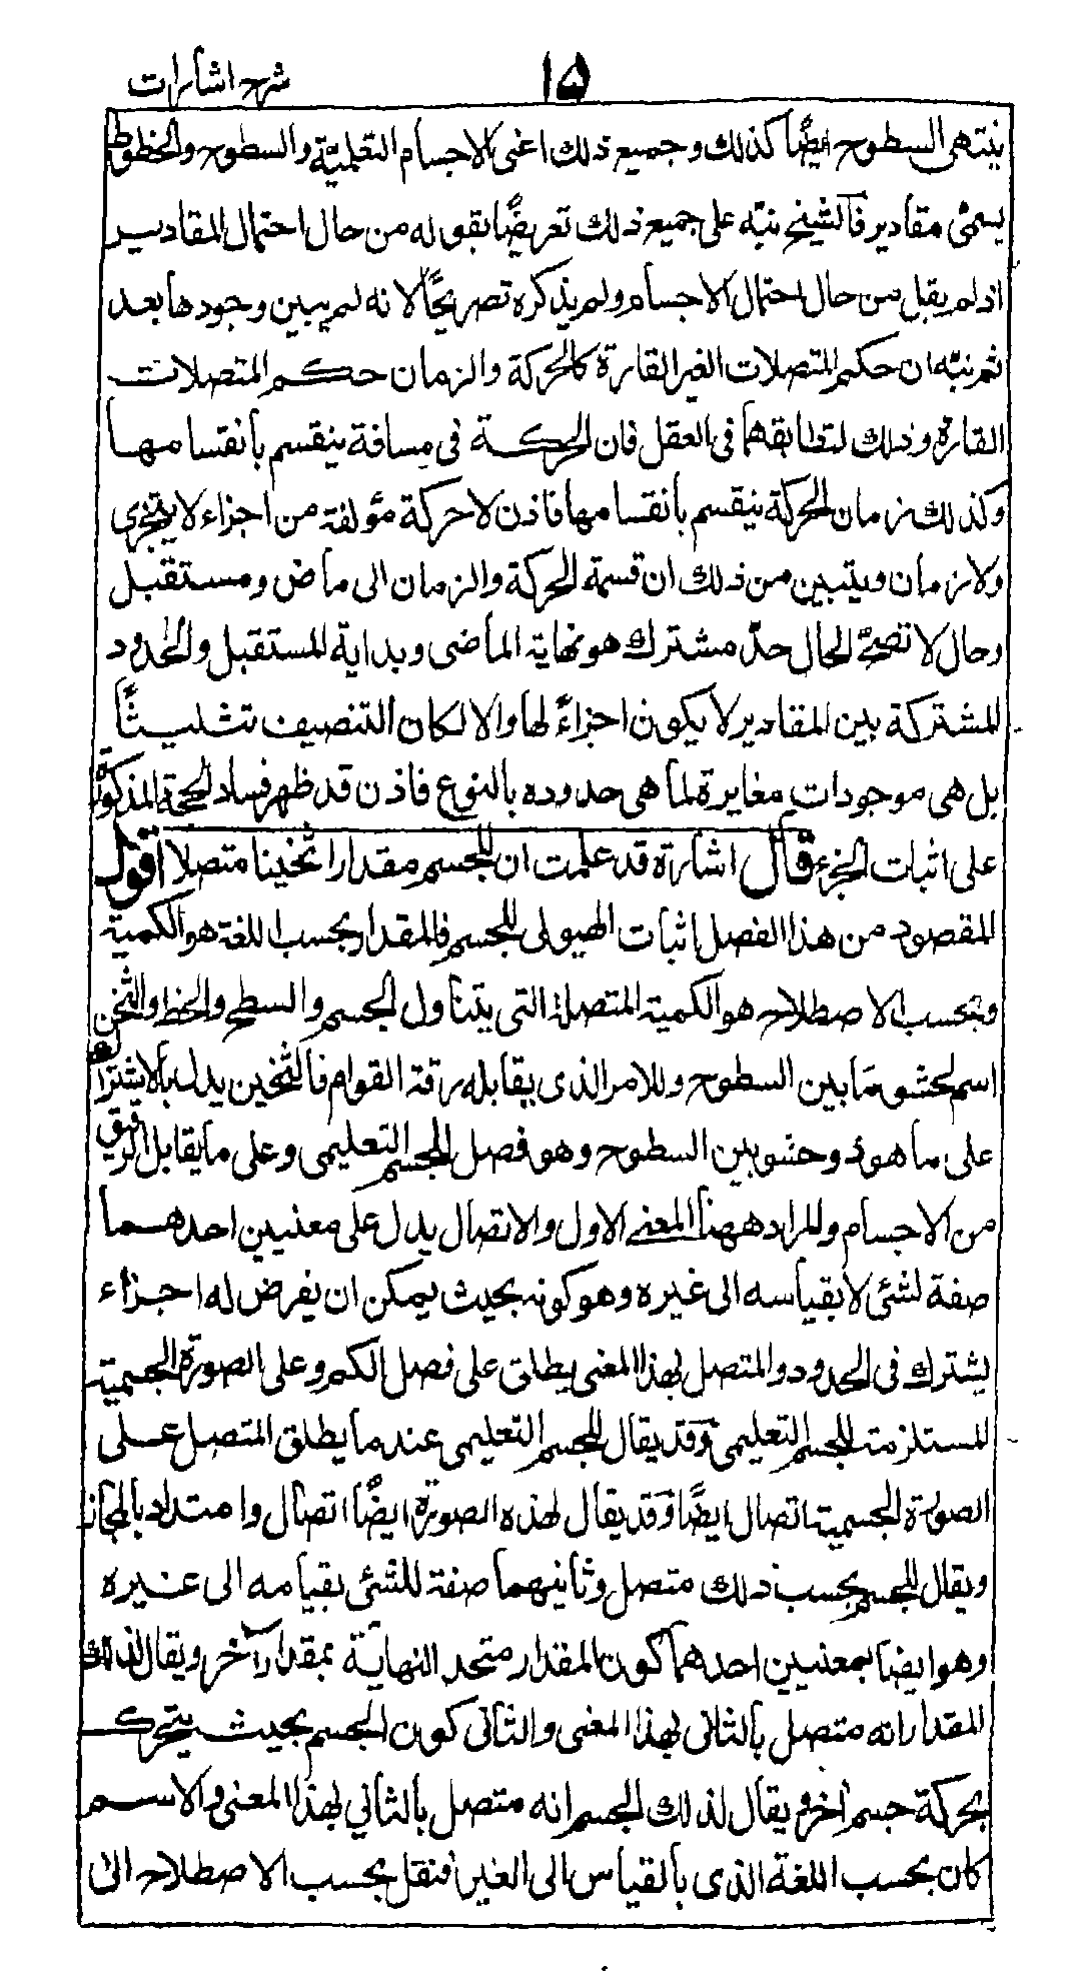 ١۵
شرح اشارات
ينتهى السطوح ايضًا كذلك وجميع ذلك اعنى الاجسام التعليميّة والسطوح والخطوط
يسمّى مقادير فالشيخ نبّه على جميع ذلك تعريضًا بقوله من حال احتمال المقادير
اذ لم يقل من حال احتمال الاجسام ولم يذكره تصريحًا لانه لم يبين وجودها بعد
ثم نبّه ان حكم المتصلات الغير القارة كالحركة والزمان حكم المتصلات
القارة وذلك لتطابقهما فى العقل فان الحركة فى مسافة ينقسم بانقسامها
وكذلك زمان الحركة ينقسم بانقسامها فاذن لا حركة مؤلفة من اجزاء لا يتجزى
ولا زمان ويتبين من ذلك ان قسمة الحركة والزمان الى ماض ومستقبل
وحال لا تصحّ الحال حدّ مشترك هو نهاية الماضى وبداية المستقبل والحدود
المشتركة بين المقادير لا يكون اجزاءً لها والا لكان التنصيف تثليثًا
بل هى موجودات مغايرة لما هى حدوده بالنوع فاذن قد ظهر فساد الحجة المذكورة
على اثبات الجزء قال اشارة قد علمت ان للجسم مقدارا ثخينا متصلا اقول
المقصود من هذا الفصل اثبات الهيولى للجسم فالمقدار بحسب اللغة هو الكمية
وبحسب الاصطلاح هو الكمية المتصلة التى يتناول الجسم والسطح والخط والثخن
اسم لحشو مَا بين السطوح وللامر الذى يقابله رقة القوام فالثخين يدل بالاشتراك
على ما هو ذو حشو بين السطوح وهو فصل الجسم التعليمى وعلى ما يقابل الرقيق
من الاجسام والمراد ههنا المعنى الاول والاتصال يدل على معنيين احدهما
صفة لشئى لا بقياسه الى غيره وهو كونه بحيث يمكن ان يفرض له اجزاء
يشترك فى الحدود والمتصل بهذا المعنى يطلق على فصل الكم وعلى الصورة الجسمية
المستلزمة للجسم التعليمى وَقد يقال للجسم التعليمى عندما يطلق المتصل على
الصورة الجسمية اتصال ايضًا وَقد يقال لهذه الصورة ايضًا اتصال وامتداد بالمجاز
ويقال للجسم بحسب ذلك متصل وثانيهما صفة للشئى بقيامه الى غيره
وهو ايضا بمعنيين احدهما كون المقدار متحد النهاية بمقدار آخر ويقال لذلك
المقدار انه متصل بالثانى بهذا المعنى والثانى كون الجسم بحيث يتحرك
بحركة جسم اخر ويقال لذلك الجسم انه متصل بالثاني بهذا المعنى والاسم
كان بحسب اللغة الذى بالقياس الى الغير فنقل بحسب الاصطلاح الى